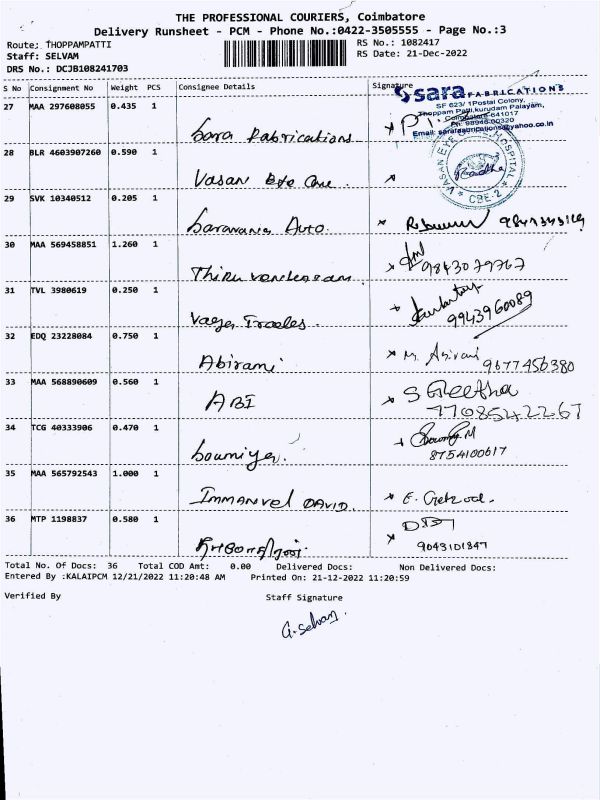 THE PROFESSIONAL COURIERS, Coimbatore
Delivery Runsheet - PCM - Phone No.:0422-3505555 - Page No.:3
Route: THOPPAMPATTI
RS No.: 1082417
Staff: SELVAM
RS Date: 21-Dec-2022
DRS No.: DCJB108241703
S No Consignment No Weight PCS Consignee Details Signature
sara FABRICATIONS
SF 623/ 1Postal Colony,
Thoppam Patti,kurudam Palayam,
Coimbatore-641017
Email: sarafabrications@yahoo.co.in
27 MAA 297608055 0.435 1
Sara Fabrications
28 BLR 4603907260 0.590 1
Vasan Eye Care.
VASAN EYE HOSPITAL
Radha
CBE-2
29 SVK 10340512 0.205 1
Saravana Auto.
30 MAA 569458851 1.260 1
Thiru venkadam
9843079767
31 TVL 3980619 0.250 1
Traders.
9943960089
32 EDQ 23228084 0.750 1
Abirami
9677456380
33 MAA 568890609 0.560 1
ABI
S Geetha
7708542267
34 TCG 40333906 0.470 1
Soumiya.
8754100617
35 MAA 565792543 1.000 1
Immanvel DAVID.
36 MTP 1198837 0.580 1
9043101847
Total No. Of Docs: 36 Total COD Amt: 0.00 Delivered Docs: Non Delivered Docs:
Entered By :KALAIPCM 12/21/2022 11:20:48 AM Printed On: 21-12-2022 11:20:59
Verified By Staff Signature
G. Selvam.